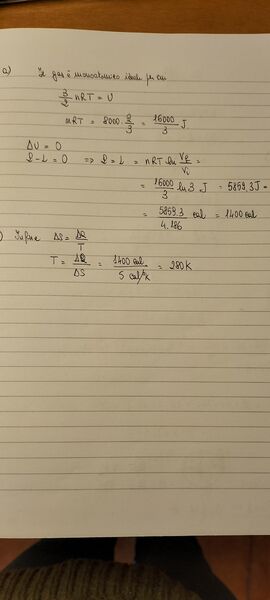 a) Il gas è monoatomico ideale per cui
3/2 nRT = U
nRT = 8000 · 2/3 = 16000/3 J
ΔU = 0
Q - L = 0 ⇒ Q = L = nRT ln Vf/Vi =
= 16000/3 ln 3 J = 5859.3 J =
= 5859.3/4.186 cal = 1400 cal
) Infine ΔS = ΔQ/T
T = ΔQ/ΔS = 1400 cal/5 cal/K = 280 K